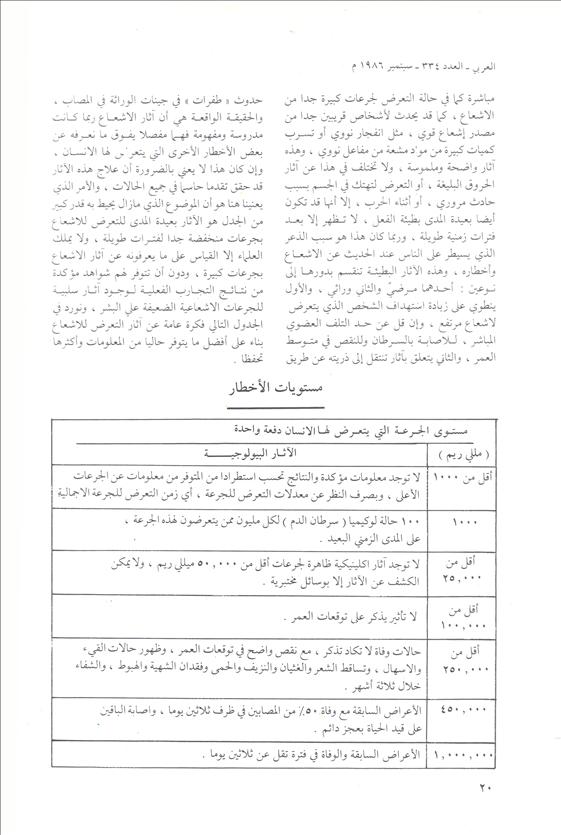 العربي ـ العدد ٣٣٤ ـ سبتمبر ١٩٨٦ م
مباشرة كما في حالة التعرض لجرعات كبيرة جدا من
الاشعاع ، كما قد يحدث لأشخاص قريبين جدا من
مصدر إشعاع قوي ، مثل انفجار نووي أو تسرب
كميات كبيرة من مواد مشعة من مفاعل نووي ، وهذه
آثار واضحة وملموسة ، ولا تختلف في هذا عن آثار
الحروق البليغة ، أو التعرض لتهتك في الجسم بسبب
حادث مروري ، أو أثناء الحرب ، إلا أنها قد تكون
أيضا بعيدة المدى بطيئة الفعل ، لا تظهر إلا بعد
فترات زمنية طويلة ، وربما كان هذا هو سبب الذعر
الذي يسيطر على الناس عند الحديث عن الاشعاع
وأخطاره ، وهذه الآثار البطيئة تنقسم بدورها إلى
نوعين : أحدهما مرضيّ والثاني وراثي ، والأول
ينطوي على زيادة استهداف الشخص الذي يتعرض
لاشعاع مرتفع ، وإن قل عن حد التلف العضوي
المباشر ، للاصابة بالسرطان وللنقص في متوسط
العمر ، والثاني يتعلق بآثار تنتقل إلى ذريته عن طريق
حدوث « طفرات » في جينات الوراثة في المصاب ،
والحقيقة الواقعة هي أن آثار الاشعاع ربما كانت
مدروسة ومفهومة فهما مفصلا يفوق ما نعرفه عن
بعض الأخطار الأخرى التي يتعرض لها الانسان ،
وإن كان هذا لا يعني بالضرورة أن علاج هذه الآثار
قد حقق تقدما حاسما في جميع الحالات ، والأمر الذي
يعنينا هنا هو أن الموضوع الذي مازال يحيط به قدر كبير
من الجدل هو الآثار بعيدة المدى للتعرض للاشعاع
بجرعات منخفضة جدا لفترات طويلة ، ولا يملك
العلماء إلا القياس على ما يعرفونه عن آثار الاشعاع
بجرعات كبيرة ، ودون أن تتوفر لهم شواهد مؤكدة
من نتائج التجارب الفعلية لوجود آثار سلبية
للجرعات الاشعاعية الضعيفة على البشر ، ونورد في
الجدول التالي فكرة عامة عن آثار التعرض للاشعاع
بناء على أفضل ما يتوفر حاليا من المعلومات وأكثرها
تحفظا .
مستويات الأخطار
مستوى الجرعة التي يتعرض لها الانسان دفعة واحدة
( مللي ريم ) الآثار البيولوجيـــة
أقل من ١٠٠٠ لا توجد معلومات مؤكدة والنتائج تحسب استطرادا من المتوفر من معلومات عن الجرعات
الأعلى ، وبصرف النظر عن معدلات التعرض للجرعة ، أي زمن التعرض للجرعة الاجمالية
١٠٠٠ ١٠٠ حالة لوكيميا ( سرطان الدم ) لكل مليون ممن يتعرضون لهذه الجرعة ،
على المدى الزمني البعيد .
أقل من ٢٥,٠٠٠ لا توجد آثار اكلينيكية ظاهرة لجرعات أقل من ٥٠,٠٠٠ ميللي ريم ، ولا يمكن
الكشف عن الآثار إلا بوسائل مختبرية .
أقل من ١٠٠,٠٠٠ لا تأثير يذكر على توقعات العمر .
أقل من ٢٥٠,٠٠٠ حالات وفاة لا تكاد تذكر ، مع نقص واضح في توقعات العمر ، وظهور حالات القيء
والاسهال ، وتساقط الشعر والغثيان والنزيف والحمى وفقدان الشهية والهبوط ، والشفاء
خلال ثلاثة أشهر .
٤٥٠,٠٠٠ الأعراض السابقة مع وفاة ٥٠٪ من المصابين في ظرف ثلاثين يوما ، واصابة الباقين
على قيد الحياة بعجز دائم .
١,٠٠٠,٠٠٠ الأعراض السابقة والوفاة في فترة تقل عن ثلاثين يوما .
٢٠